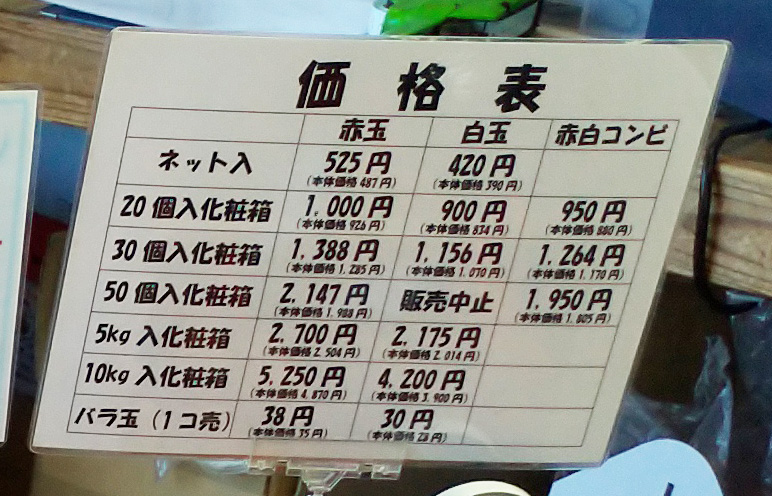 価格表
赤玉 白玉 赤白コンビ
ネット入 525円 420円
(本体価格 487円) (本体価格 390円)
20個入化粧箱 1,000円 900円 950円
(本体価格 926円) (本体価格 834円) (本体価格 880円)
30個入化粧箱 1,388円 1,156円 1,264円
(本体価格 1,285円) (本体価格 1,070円) (本体価格 1,170円)
50個入化粧箱 2,147円 販売中止 1,950円
(本体価格 1,988円) (本体価格 1,805円)
5kg入化粧箱 2,700円 2,175円
(本体価格 2,504円) (本体価格 2,014円)
10kg入化粧箱 5,250円 4,200円
(本体価格 4,870円) (本体価格 3,900円)
バラ玉(1コ売) 38円 30円
(本体価格 35円) (本体価格 28円)